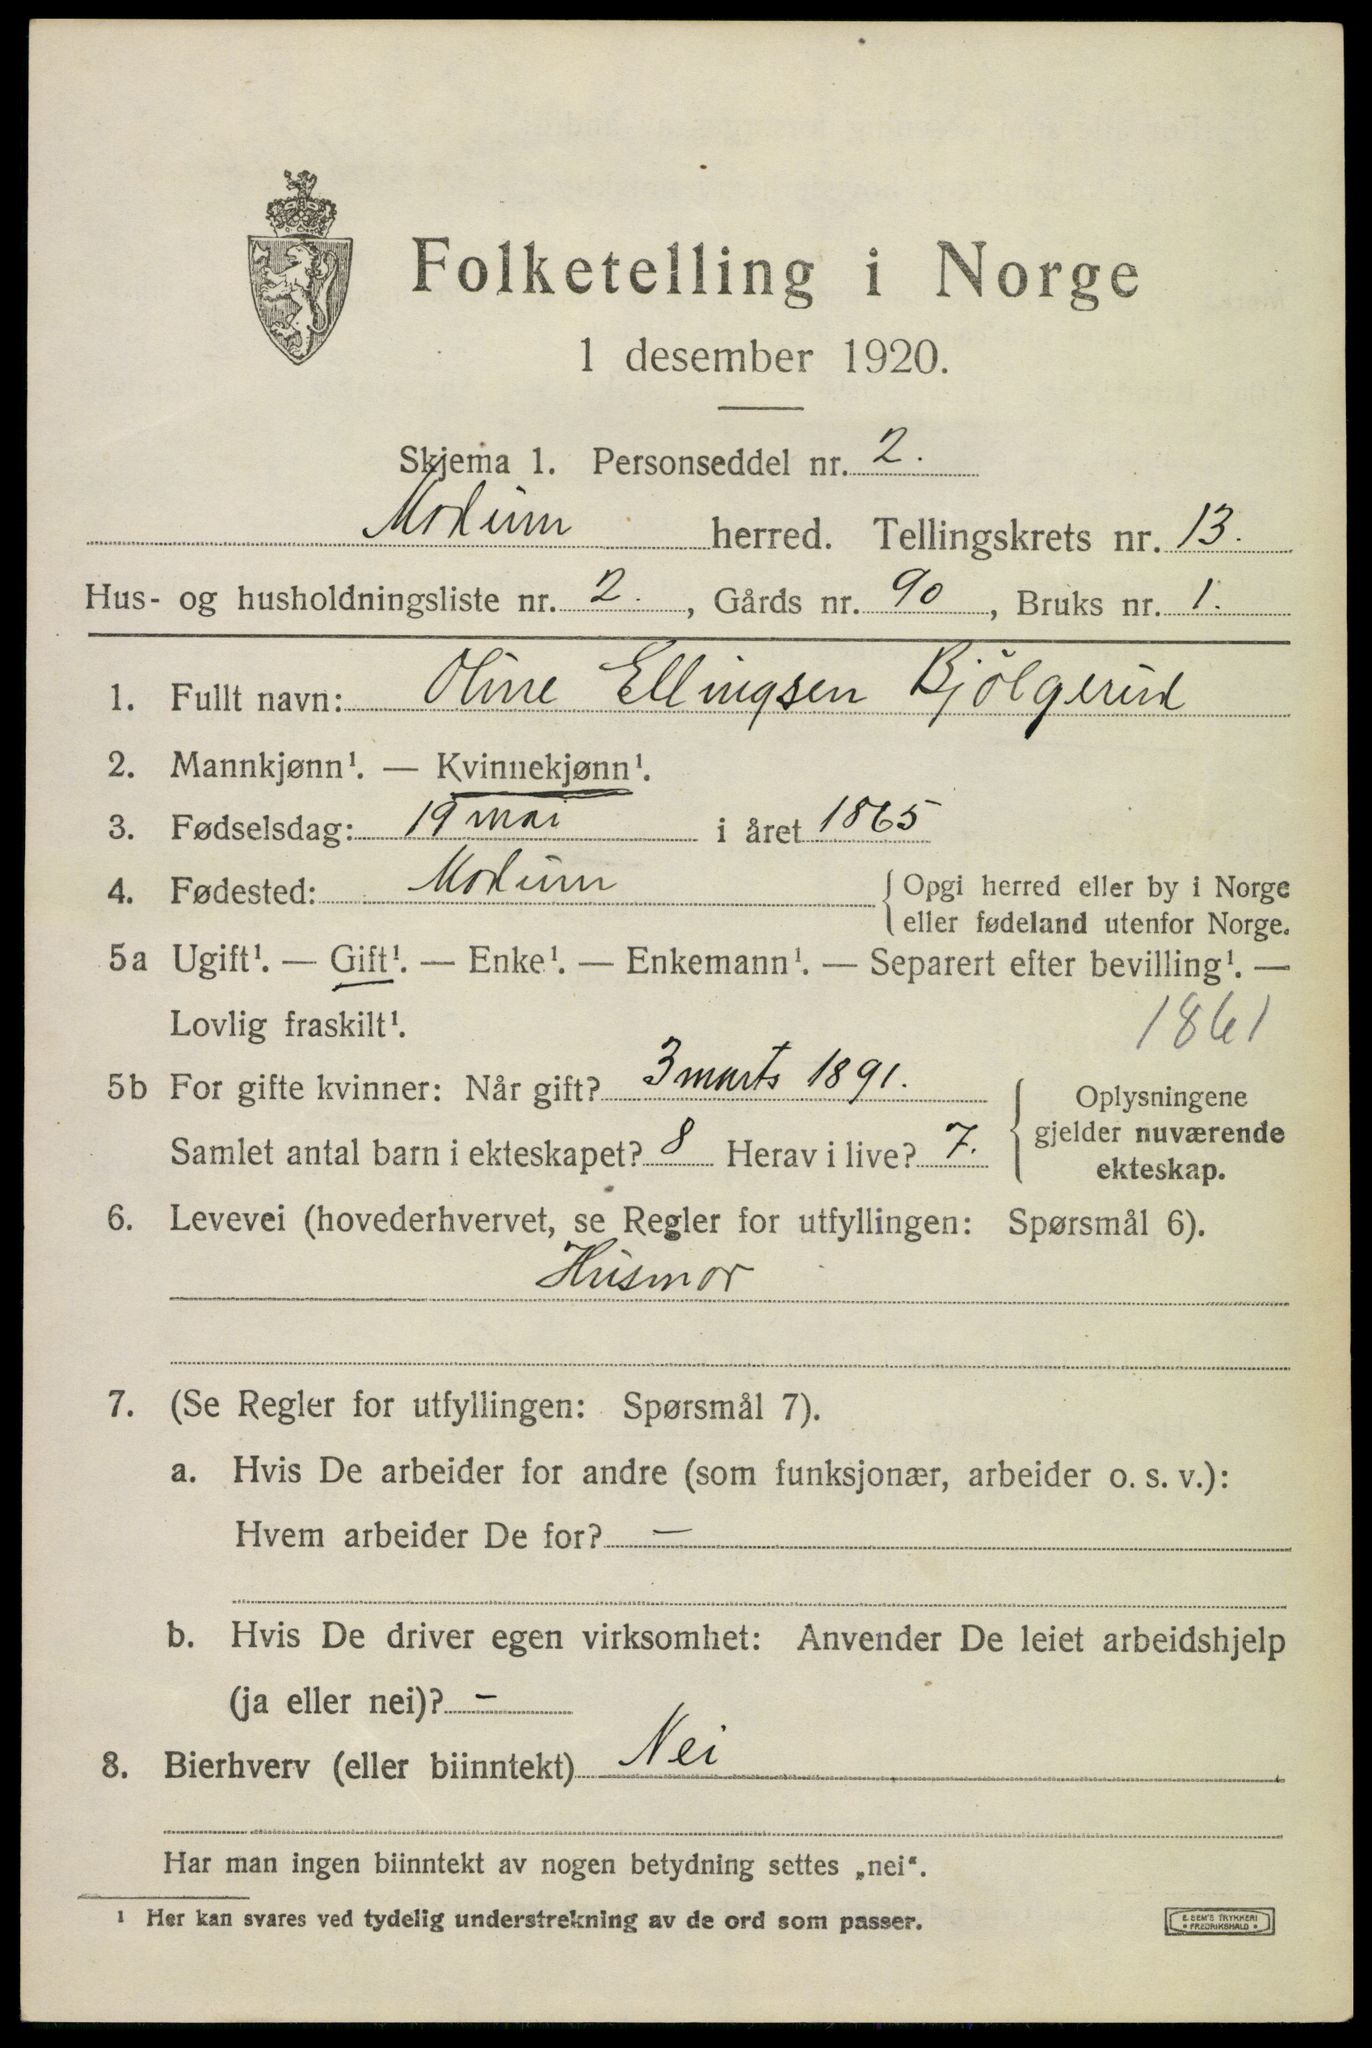 Folketelling i Norge
1 desember 1920.
Skjema 1. Personseddel nr. 2.
Modum herred. Tellingskrets nr. 13.
Hus- og husholdningsliste nr. 2., Gårds nr. 90, Bruks nr. 1.
1. Fullt navn: Oline Ellingsen Bjölgerud
2. Mannkjønn¹. — Kvinnekjønn¹.
3. Fødselsdag: 19 mai i året 1865
4. Fødested: Modum { Opgi herred eller by i Norge
eller fødeland utenfor Norge.
5a Ugift¹. — Gift¹. — Enke¹. — Enkemann¹. — Separert efter bevilling¹. —
Lovlig fraskilt¹. 1861
5b For gifte kvinner: Når gift? 3 marts 1891.
Samlet antal barn i ekteskapet? 8 Herav i live? 7.
{ Oplysningene
gjelder nuværende
ekteskap.
6. Levevei (hovederhvervet, se Regler for utfyllingen: Spørsmål 6).
Husmor
7. (Se Regler for utfyllingen: Spørsmål 7).
a. Hvis De arbeider for andre (som funksjonær, arbeider o. s. v.):
Hvem arbeider De for? —
b. Hvis De driver egen virksomhet: Anvender De leiet arbeidshjelp
(ja eller nei)? –
8. Bierhverv (eller biinntekt) Nei
Har man ingen biinntekt av nogen betydning settes „nei“.
¹ Her kan svares ved tydelig understrekning av de ord som passer.
E. SEM'S TRYKKERI
• FREDRIKSHALD •